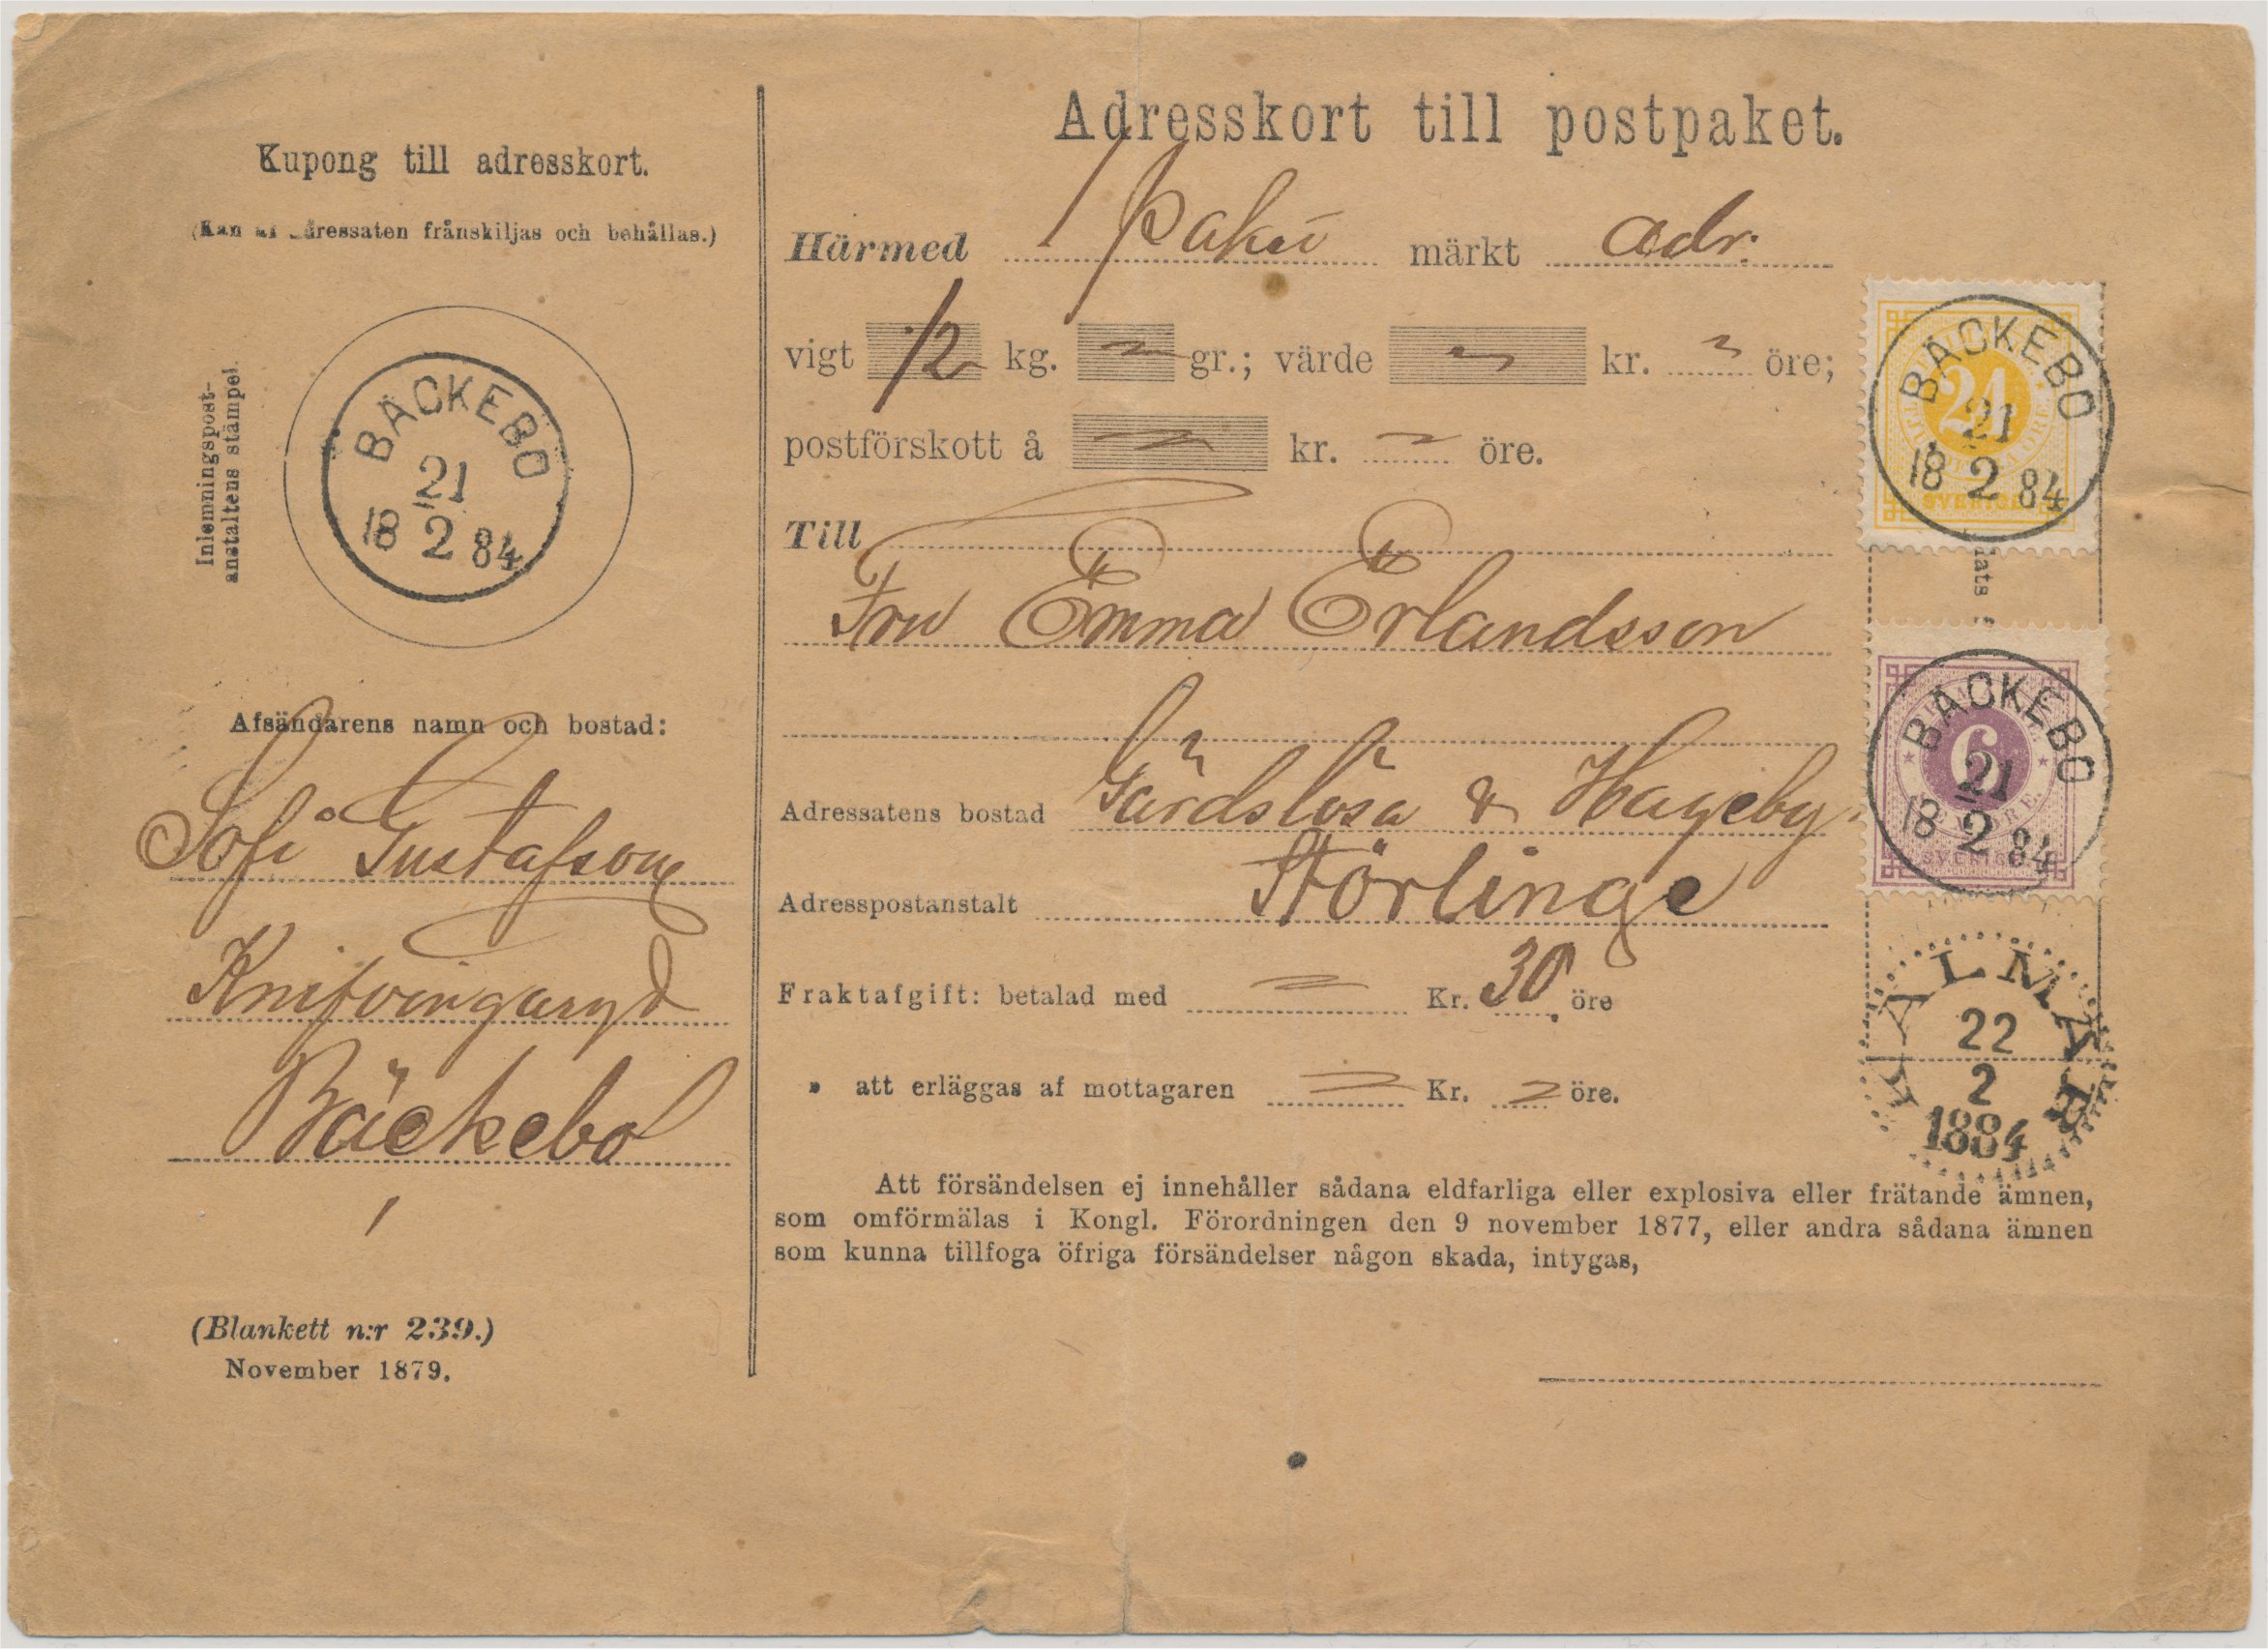 Kupong till adresskort.
(Kan af adressaten frånskiljas och behållas.)
Inlemningspost-
anstaltens stämpel.
BÄCKEBO
21
18 2 84
Afsändarens namn och bostad:
Sofi Gustafson
Knifvingaryd
Bäckebo
(Blankett n:r 239.)
November 1879.
Adresskort till postpaket.
Härmed 1 paket märkt adr.
vigt 1/2 kg. gr.; värde kr. öre;
postförskott å kr. öre.
Till
Fru Emma Erlandsson
Adressatens bostad Gärdslösa & Hageby
Adresspostanstalt Störlinge
Fraktafgift: betalad med Kr. 30 öre
» att erläggas af mottagaren Kr. öre.
Att försändelsen ej innehåller sådana eldfarliga eller explosiva eller frätande ämnen,
som omförmälas i Kongl. Förordningen den 9 november 1877, eller andra sådana ämnen
som kunna tillfoga öfriga försändelser någon skada, intygas,
24
SVERIGE
BÄCKEBO
21
18 2 84
6
SVERIGE
BÄCKEBO
21
18 2 84
KALMAR
22
2
1884